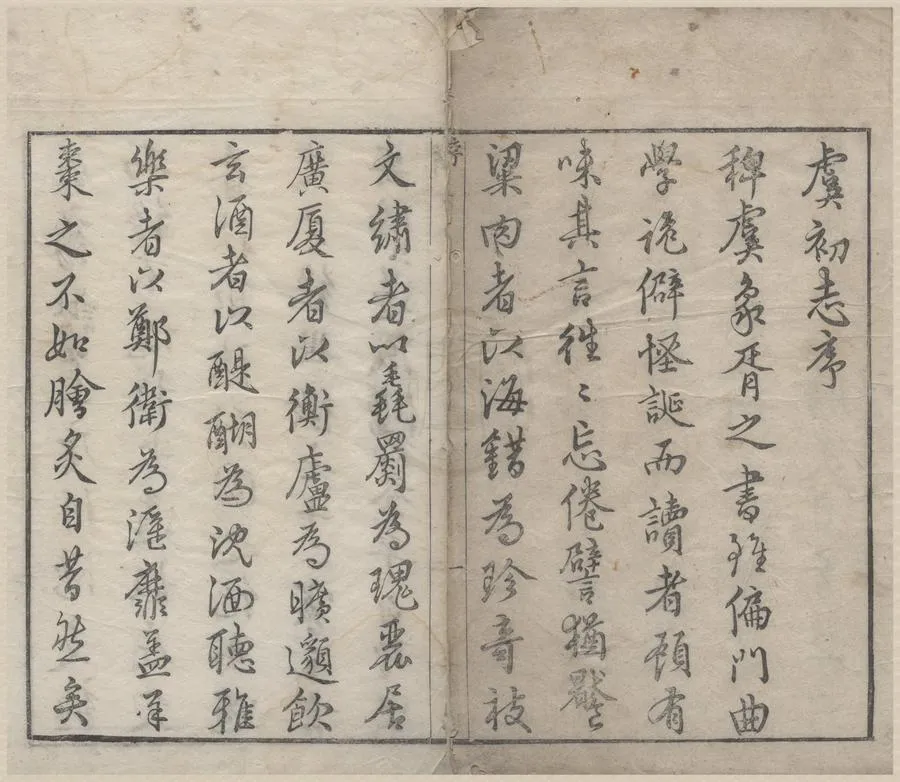 虞初志序
稗虞象胥之書雖偏門曲
學詭僻怪誕而讀者顧有
味其言往〻忘倦譬猶饜
粱肉者以海錯為珍奇被
序
一
文繡者以毳罽為瑰居
廣廈者以衡廬為曠邈飲
玄酒者以醍醐為沈湎聽雅
樂者以鄭衛為淫靡蓋羊
棗之不如膾炙自昔然矣